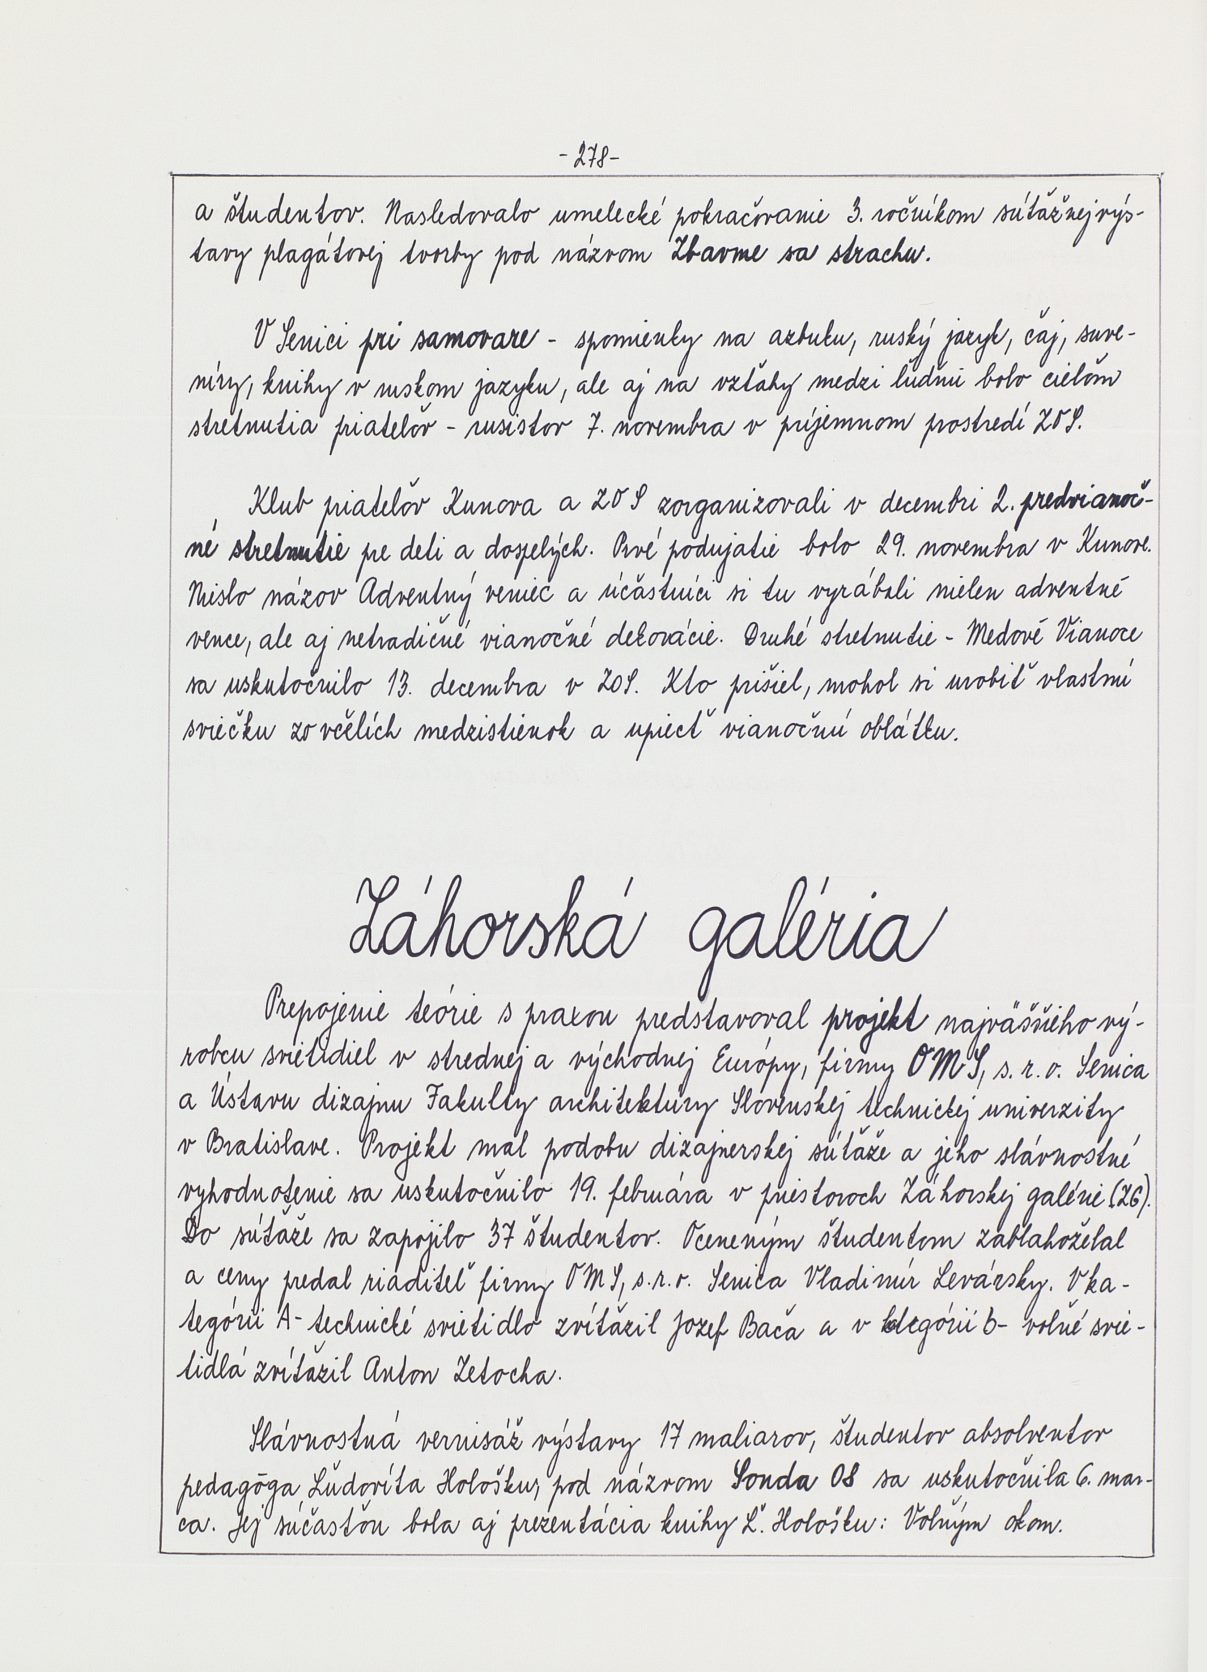 -278-
a študentov. Nasledovalo umelecké pokračovanie 3. ročníkom súťažnej výs-
tavy plagátovej tvorby pod názvom Zbavme sa strachu.
V Senici pri samovare - spomienky na azbuku, ruský jazyk, čaj, suve-
níry, knihy v ruskom jazyku, ale aj na vzťahy medzi ľuďmi bolo cieľom
stretnutia priateľov - rusistov 7. novembra v príjemnom prostredí ZOS.
Klub priateľov Kunova a ZOS zorganizovali v decembri 2. predvianoč-
né stretnutie pre deti a dospelých. Prvé podujatie bolo 29. novembra v Kunove.
Nieslo názov Adventný veniec a účastníci si tu vyrábali nielen adventné
vence, ale aj netradičné vianočné dekorácie. Druhé stretnutie - Medové Vianoce
sa uskutočnilo 13. decembra v ZOS. Kto prišiel, mohol si urobiť vlastnú
sviečku zo včelích medzistienok a upiecť vianočnú oblátku.
Záhorská galéria
Prepojenie teórie s praxou predstavoval projekt najväčšieho vý-
robcu svietidiel v strednej a východnej Európy, firmy OMS, s.r.o. Senica
a Ústavu dizajnu Fakulty architektúry Slovenskej technickej univerzity
v Bratislave. Projekt mal podobu dizajnerskej súťaže a jeho slávnostné
vyhodnotenie sa uskutočnilo 19. februára v priestoroch Záhorskej galérie (ZG).
Do súťaže sa zapojilo 37 študentov. Oceneným študentom zablahoželal
a ceny predal riaditeľ firmy OMS, s.r.o. Senica Vladimír Levársky. V ka-
tegórii A- technické svietidlo zvíťazil Jozef Bača a v ktegórii b- voľné svie-
tidlá zvíťazil Anton Zetocha.
Slávnostná vernisáž výstavy 17 maliarov, študentov absolventov
pedagóga Ľudovíta Hološku, pod názvom Sonda 08 sa uskutočnila 6. mar-
ca. Jej súčasťou bola aj prezentácia knihy Ľ. Hološku: Voľným okom.